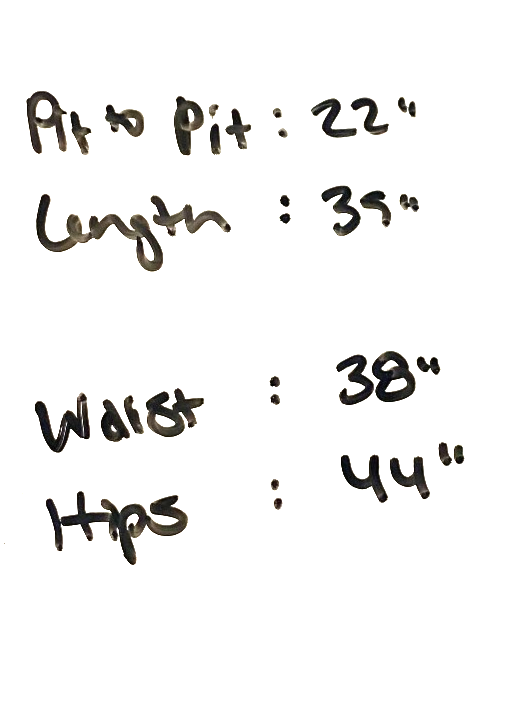 Pit to Pit : 22"
Length : 39"
Waist : 38"
Hips : 44"